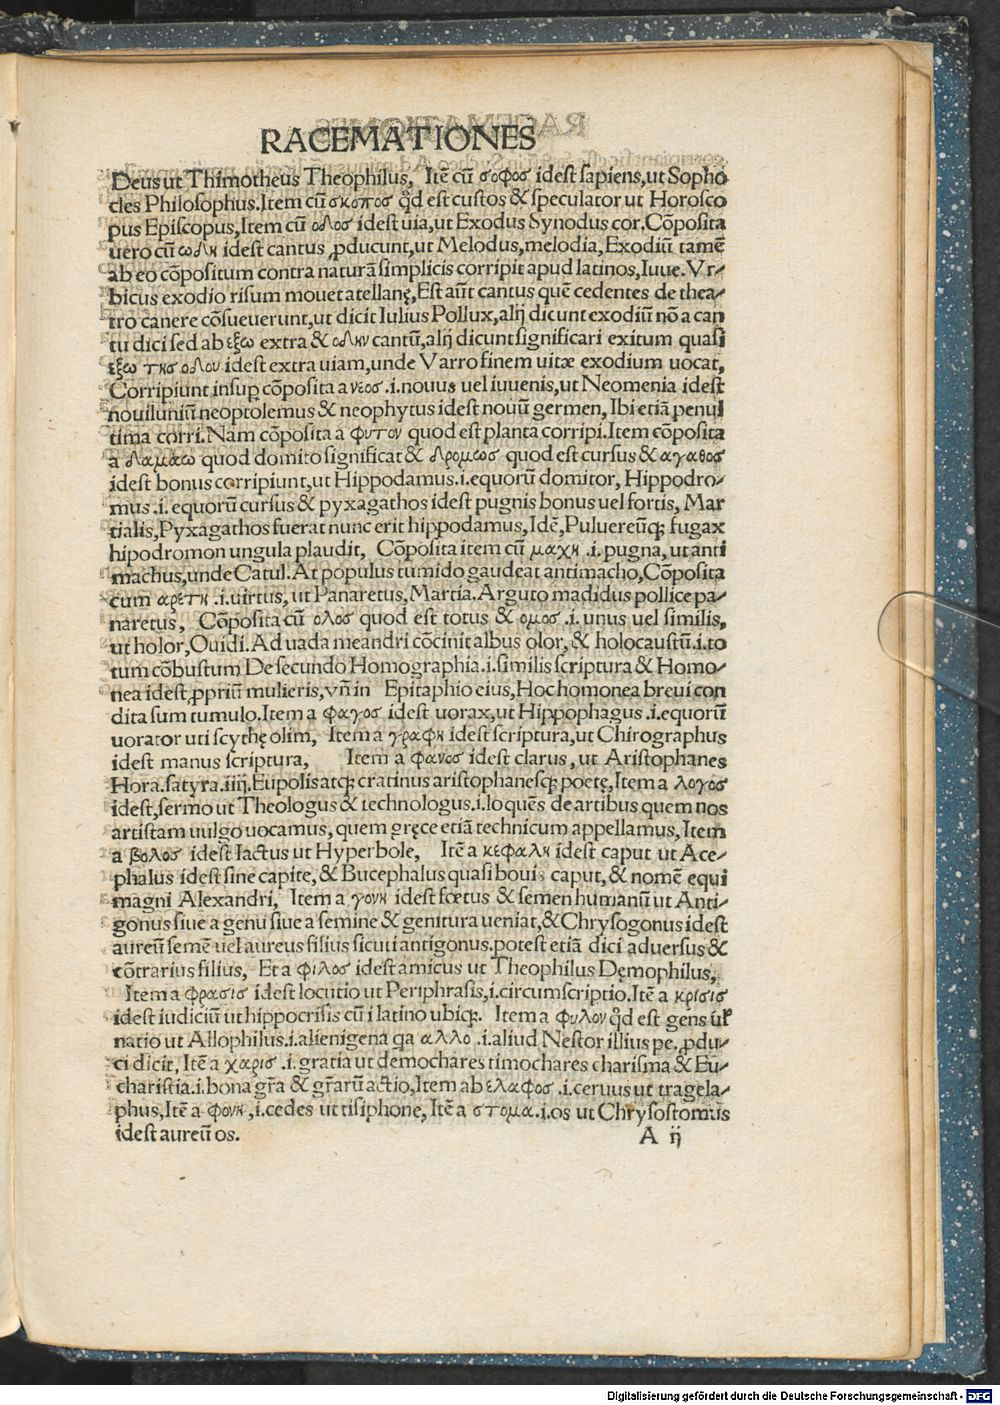 RACEMATIONES
Deus ut Thimotheus Theophilus, Itē cū σοφοσ idest sapiens, ut Sopho
cles Philosophus. Item cū σκοποσ qd̄ est custos & speculator ut Horosco
pus Episcopus, Item cū οδοσ idest uia, ut Exodus Synodus cor. Cōposita
uero cū ωδη idest cantus ꝓducunt, ut Melodus, melodia, Exodiū tamē
ab eo cōpositum contra naturā simplicis corripit apud latinos, Iuue. Vr-
bicus exodio risum mouet atellanę, Est aūt cantus quē cedentes de thea-
tro canere cōsueuerunt, ut dicit Iulius Pollux, alij dicunt exodiū nō a can
tu dici sed ab εξω extra & ωδην cantū, alij dicunt significari exitum quasi
εξω τησ οδου idest extra uiam, unde Varro finem uitæ exodium uocat,
Corripiunt insup̱ cōposita a νεοσ .i. nouus uel iuuenis, ut Neomenia idest
nouiluniū neoptolemus & neophytus idest nouū germen, Ibi etiā penul
tima corri. Nam cōposita a φυτον quod est planta corripi. Item cōposita
a δαμαω quod domito significat & δρομεοσ quod est cursus & αγαθοσ
idest bonus corripiunt, ut Hippodamus .i. equorū domitor, Hippodro-
mus .i. equorū cursus & pyxagathos idest pugnis bonus uel fortis, Mar
tialis, Pyxagathos fuerat nunc erit hippodamus, Idē, Puluereūqꝫ fugax
hipodromon ungula plaudit, Cōposita item cū μαχη .i. pugna, ut anti
machus, unde Catul. At populus tumido gaudeat antimacho, Cōposita
cum αρετη .i. uirtus, ut Panaretus, Martia. Arguto madidus pollice pa-
naretus, Cōposita cū ολοσ quod est totus & ομοσ .i. unus uel similis,
ut holor, Ouidi. Ad uada meandri cōcinit albus olor, & holocaustū .i. to
tum cōbustum De secundo Homographia .i. similis scriptura & Homo-
nea idest, ꝓpriū mulieris, vn̄ in Epitaphio eius, Hoc homonea breui con
dita sum tumulo. Item a φαγοσ idest uorax, ut Hippophagus .i. equorū
uorator uti scythę olim, Item a γραφη idest scriptura, ut Chirographus
idest manus scriptura, Item a φανοσ idest clarus, ut Aristophanes
Hora. satyra. iiij. Eupolis atqꝫ cratinus aristophanesqꝫ poetę, Item a λογοσ
idest, sermo ut Theologus & technologus .i. loquēs de artibus quem nos
artistam uulgo uocamus, quem gręce etiā technicum appellamus, Item
a βολοσ idest Iactus ut Hyperbole, Itē a κεφαλη idest caput ut Ace-
phalus idest sine capite, & Bucephalus quasi bouis caput, & nomē equi
magni Alexandri, Item a γονη idest fœtus & semen humanū ut Anti-
gonus siue a genu siue a semine & genitura ueniat, & Chrysogonus idest
aureū semē uel aureus filius sicuti antigonus. potest etiā dici aduersus &
cōtrarius filius, Et a φιλοσ idest amicus ut Theophilus Dęmophilus,
Item a φρασισ idest locutio ut Periphrasis, .i. circumscriptio. Itē a κρισισ
idest iudiciū ut hippocrisis cū i latino ubiqꝫ. Item a φυλον qd̄ est gens uł
natio ut Allophilus .i. alienigena qa αλλο .i. aliud Nestor illius pe, ꝓdu-
ci dicit, Itē a χαρισ .i. gratia ut demochares timochares charisma & Eu-
charistia .i. bona gr̄a & gr̄arū actio, Item ab ελαφοσ .i. ceruus ut tragela-
phus, Itē a φονη, .i. cedes ut tisiphone, Itē a στομα .i. os ut Chrysostomus
idest aureū os.
A ij
Digitalisierung gefördert durch die Deutsche Forschungsgemeinschaft - DFG